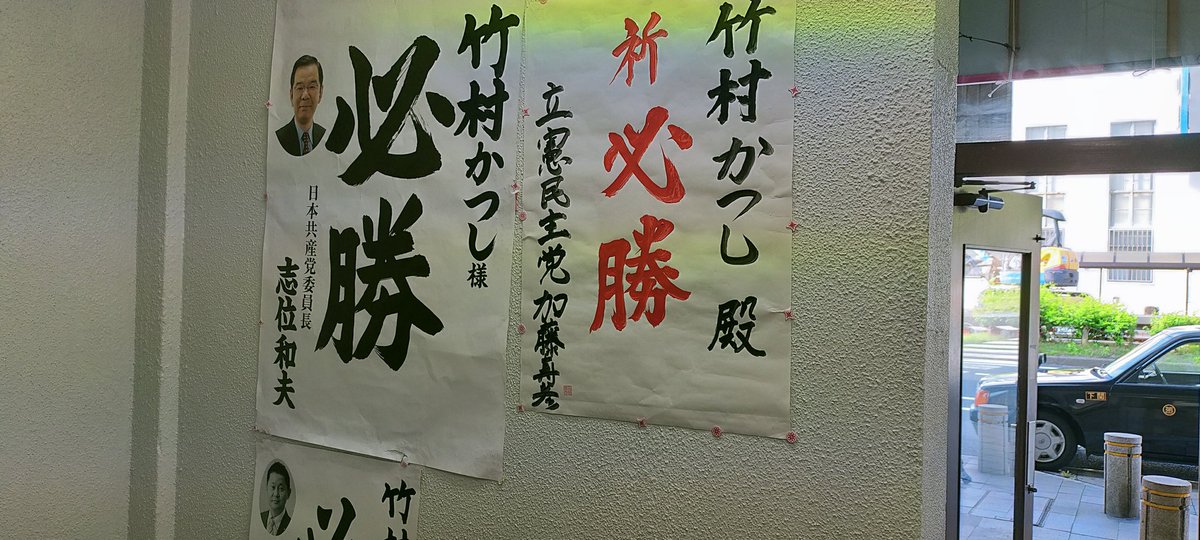 竹村かつし 殿
祈 必勝
立憲民主党 加藤寿彦
竹村かつし様
必勝
日本共産党委員長
志位和夫
竹村
必